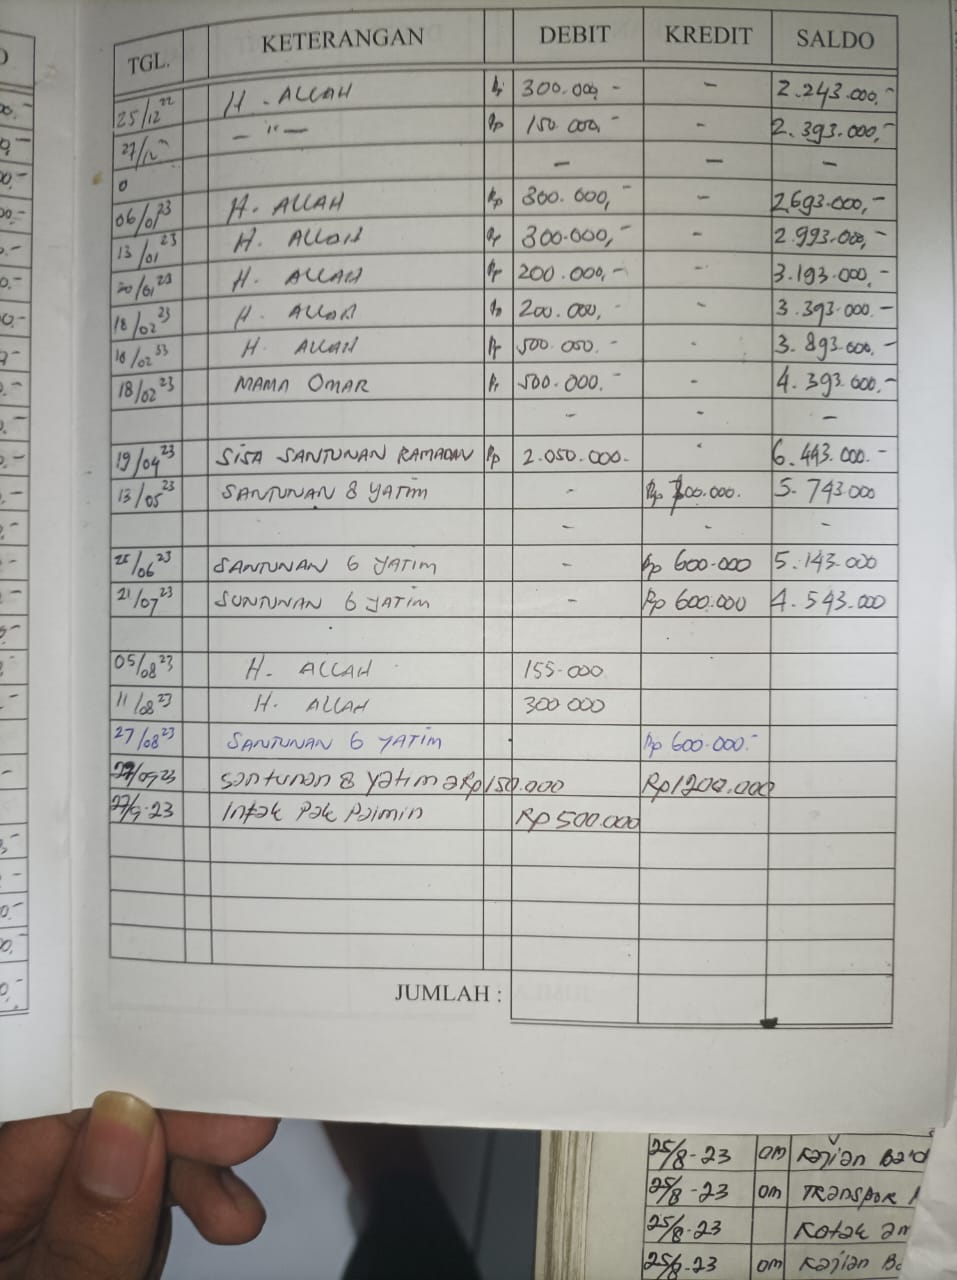 TGL. KETERANGAN DEBIT KREDIT SALDO
25/12 22 H. ALLAH Rp 300.000,- - 2.243.000,-
27/12 - " - Rp 150.000,- - 2.393.000,-
0 - - -
06/01 23 H. ALLAH Rp 300.000,- - 2.693.000,-
13/01 23 H. ALLAH Rp 300.000,- - 2.993.000,-
20/01 23 H. ALLAH Rp 200.000,- - 3.193.000,-
18/02 23 H. ALLAH Rp 200.000,- - 3.393.000.-
18/02 H. ALLAH Rp 500.000.- - 3.893.000,-
18/02 23 MAMA OMAR Rp 500.000.- - 4.393.000,-
- - -
19/04 23 SISA SANTUNAN RAMADAN Rp 2.050.000.- - 6.443.000.-
13/05 23 SANTUNAN 8 YATIM - Rp 700.000. 5.743.000
- - -
25/06 23 SANTUNAN 6 YATIM - Rp 600.000 5.143.000
21/07 23 SUNTUNAN 6 YATIM - Rp 600.000 4.543.000
05/08 23 H. ALLAH 155.000
11/08 23 H. ALLAH 300.000
27/08 23 SANTUNAN 6 YATIM Rp 600.000.-
27/09 23 Santunan 8 Yatim a Rp 150.000 Rp 1200.000
27/9-23 Infak Pak Paimin Rp 500.000
JUMLAH :
25/8-23 om Kajian
25/8-23 om TRANSPOR
25/8-23 Kotak
25/8-23 om Kajian